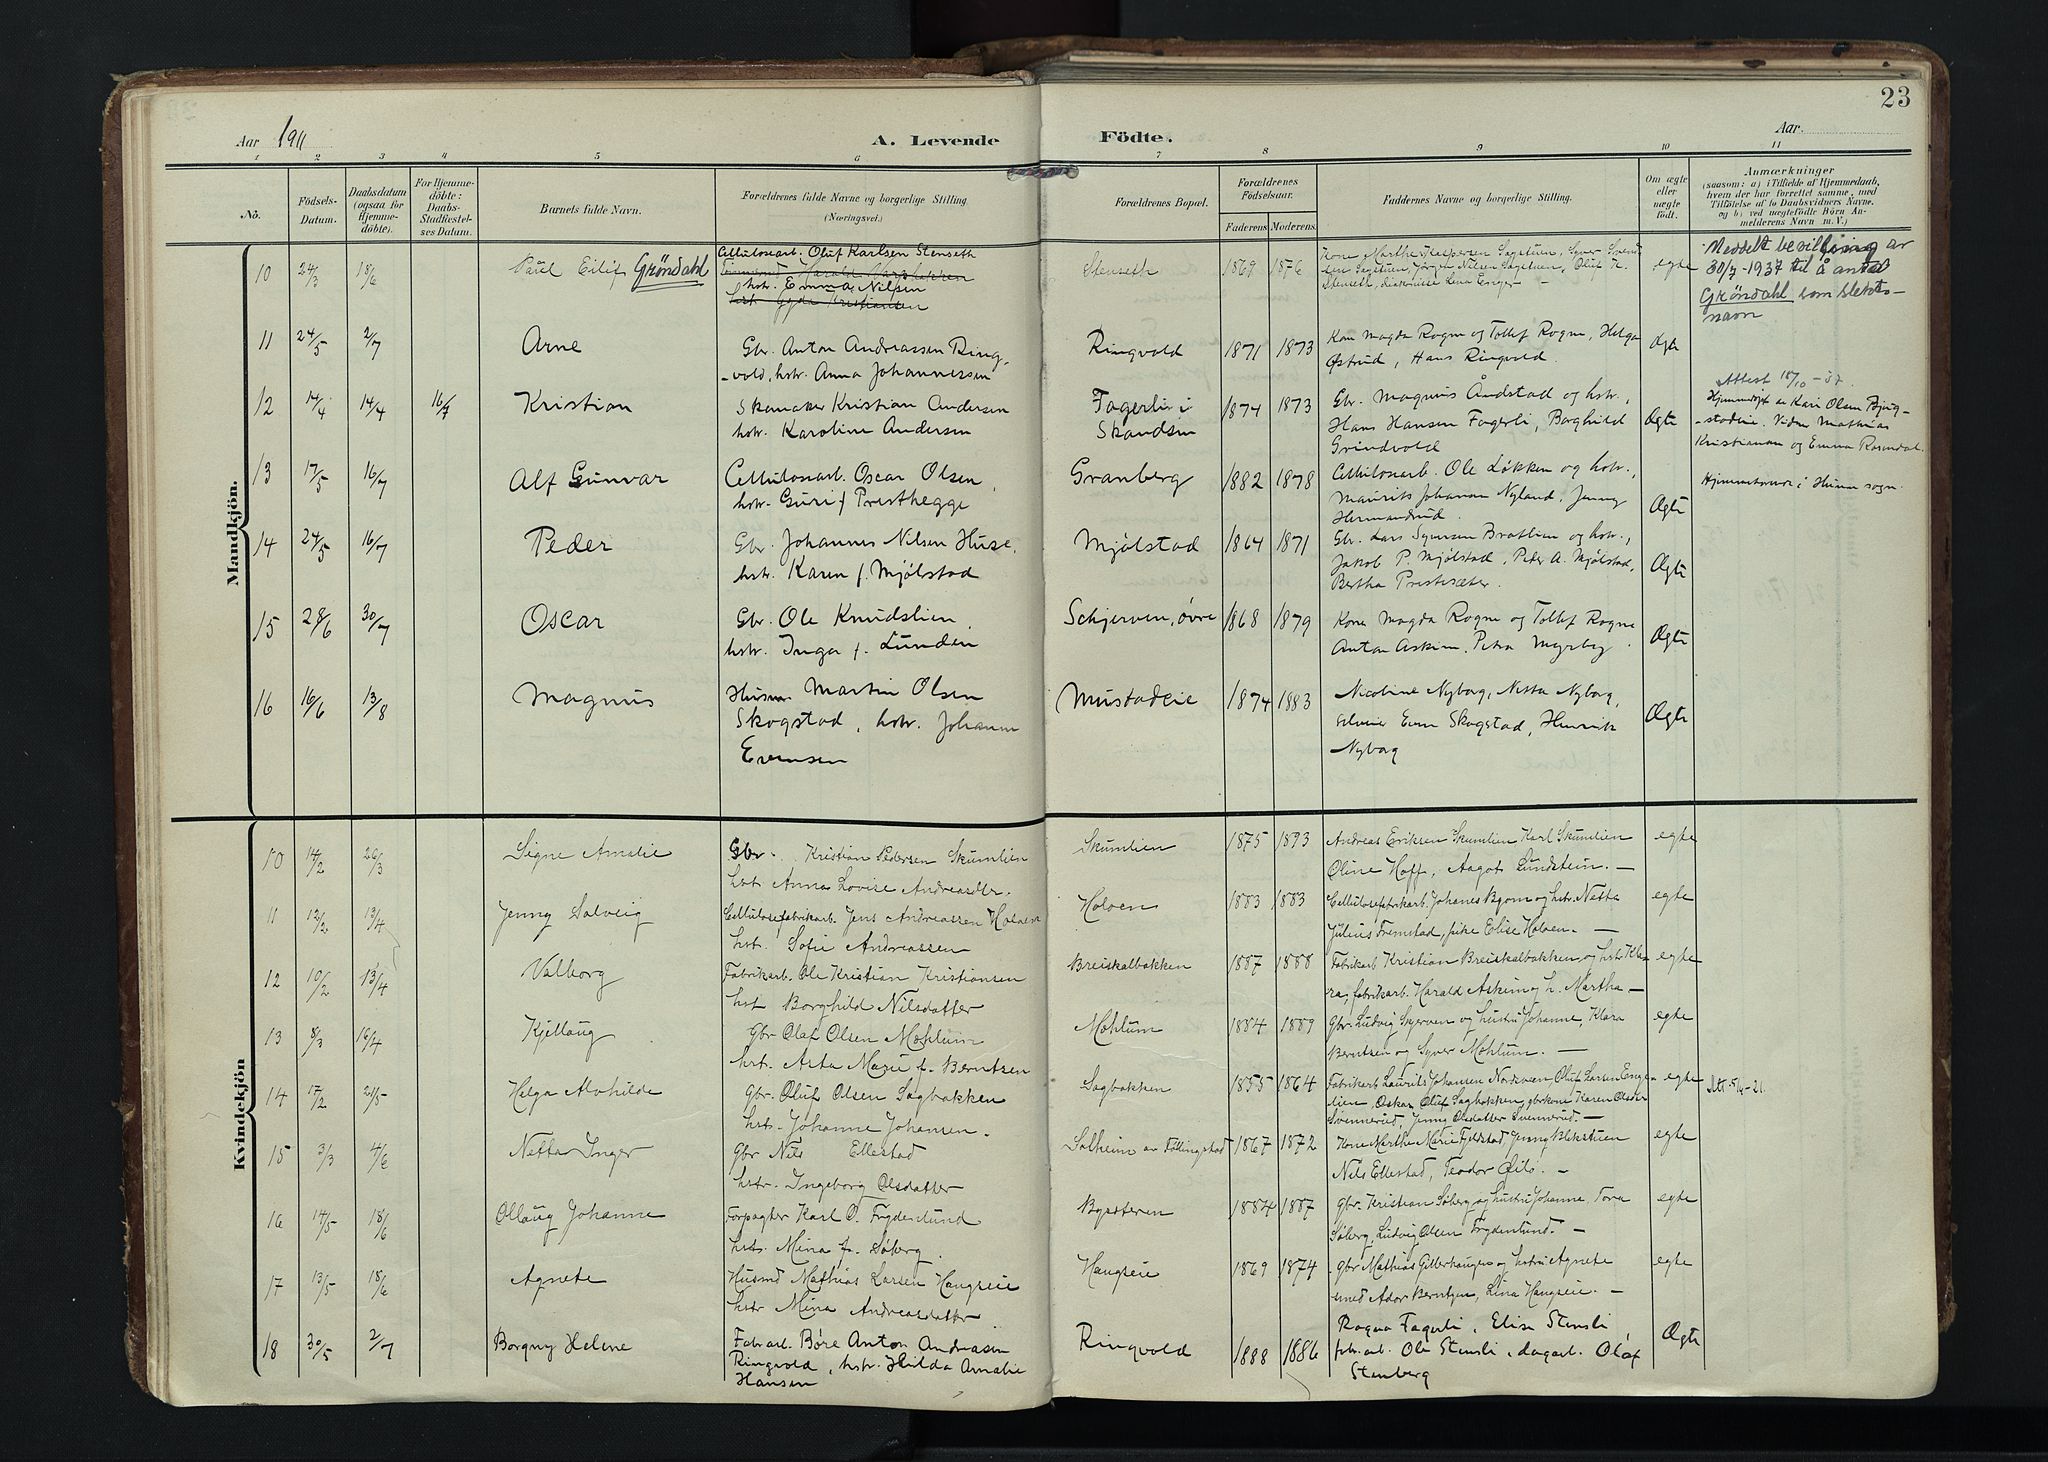 23
Aar 1911
A. Levende Födte.
Aar.
1 2 3 4 5 6 7 8 9 10 11
No.
Födsels-Datum.
Daabsdatum (ogsaa for Hjemmedöbte).
For Hjemmedöbte: Daabs-Stadfæstelses Datum.
Barnets fulde Navn.
Forældrenes fulde Navne og borgerlige Stilling. (Næringsvei.)
Forældrenes Bopæl.
Forældrenes Födselsaar.
Faderens Moderens.
Faddernes Navne og borgerlige Stilling.
Om ægte eller uægte födt.
Anmærkninger
(saasom: a) i Tilfælde af Hjemmedaab, hvem der har forrettet samme, med Tilföielse af to Daabsvidners Navne, og b) ved uægtefödte Börn Anmelderens Navn m. V.)
Mandkjön.
10 24/3 18/6 Paul Eilif Gröndahl
Cellulosearb. Oluf Karlsen Stenseth
hstr. Emma Nilsen
Stenseth 1869 1876
egte
Meddelt bevilling av
30/7-1937 til å anta
Gröndahl som slekts-
navn
11 24/5 2/7 Arne
Gbr. Anton Andreassen Ring-
vold, hstr. Anna Johannessen
Ringvold 1871 1873
Kone Magda Rogne og Tollef Rogne, Helga
Østrud, Hans Ringvold.
Ægte
12 14/4 14/4 16/7 Kristian
Skomaker Kristian Andersen
hstr. Karoline Andersen
Fagerli i
Skandsen
1874 1873
Gbr. Magnus Åndstad og hstr.,
Hans Hansen Fagerli, Borghild
Grindvold
Ægte
Attest 18/10-37.
Hjemmedöpt av Kari Olsen Bjug-
stadeie. Vidner Mathias
Kristiansen og Emma Rosendal.
13 17/5 16/7 Alf Gunvar
Cellulosearb. Oscar Olsen,
hstr. Guri f. Presthegge
Granberg 1882 1878
Cellulosearb. Ole Løkken og hstr.,
Maurits Johansen Nyland, Jenny
Hermandrud.
Ægte
Hjemmehørende i Hunn sogn.
14 24/5 16/7 Peder
Gbr. Johannes Nilsen Huse,
hstr. Karen f. Mjølstad
Mjølstad 1864 1871
Gbr. Lars Syversen Bratlien og hstr.,
Jakob P. Mjølstad, Peter A. Mjølstad,
Bertha Prestesæter.
Ægte
15 28/6 30/7 Oscar
Gbr. Ole Knudslien,
hstr. Inga f. Lunden
Schjerven, øvre 1868 1879
Kone Magda Rogne og Tollef Rogne
Anton Askim, Petra Myrby.
Ægte
16 16/6 13/8 Magnus
Husm. Martin Olsen
Skogstad, hstr. Johanne
Evensen
Mustadeie 1874 1883
Nicoline Nyborg, Netta Nyborg,
Even Skogstad, Henrik
Nyborg
Ægte
Kvindekjön
10 14/2 26/3 Signe Amelie
Gbr. Kristian Pedersen Skumlien
hstr. Anna Lovise Andreasdtr.
Skumlien 1875 1893
Andreas Eriksen Skumlien Karl Skumlien
Oline Hoff, Aagot Lundstein. —
egte
11 12/2 13/4 Jenny Solveig
Cellulosefabrikarb. Jens Andreassen Holven
hstr. Sofie Andreassen
Holven 1883 1883
Cellulosefabrikarb. Johanes Byom og hstr. Netta
Julius Fremstad, pike Elise Holven. —
egte
12 10/2 13/4 Valborg
Fabrikarb. Ole Kristian Kristiansen
hst Borghild Nilsdatter
Breiskalbakken 1887 1888
Fabrikarb Kristian Breiskalbakken og hstr Kla-
ra, fabrikarb. Harald Askim og h. Martha —
egte
13 8/3 16/4 Kjellaug
Gbr Olaf Olsen Mæhlum
hstr. Asta Marie f. Berntsen
Mæhlum 1884 1889
Gbr Ludvig Skjerven og hustru Johanne, Klara
Berntsen og Syver Mæhlum. —
egte
14 17/2 21/5 Helga Alvhilde
Gbr. Oluf Olsen Sagbakken
hstr. Johanne Johansen.
Sagbakken 1855 1864
Fabrikarb. Laurits Johansen Nordsveen, Oluf Larsen Enge-
lien, Oskar Oluf Sagbakken, gbrkone Karen Olsen
Svennerud, Jenny Olsdatter Svennerud. —
egte
Att. 5/4-21.
15 3/3 4/6 Netta Inger
Gbr Nils Ellestad
hstr. Ingeborg Olsdatter
Solheim avFöllingstad 1867 1872
Kone Marthe Marie Fjeldstad, Jenny Blekstuen
Nils Ellestad, Teodor Öilö. —
egte
16 14/5 18/6 Ollaug Johanne
Forpagter Karl O. Frydenlund
hstr. Mina f. Söberg.
Bysteren 1884 1887
Gbr. Kristian Söberg og hustru Johanne, Tora
Söberg, Ludvig Olsen Frydenlund. —
egte
17 13/5 18/6 Agnete
Husmd Mathias Larsen Haugseie
hstr Mina Andreasdatter
Haugseie 1869 1874
Gbr Mathias Gillerhaugen og hustru Agnete
smed Ador Berntsen, Lina Haugseie. —
egte
18 30/5 2/7 Borgny Helene
Fab.arb. Børe Anton Andreasen
Ringvold, hstr. Hilda Amalie
Hansen
Ringvold 1888 1886
Ragna Fagerli, Elise Stensli
fabr.arb. Ole Stensli, dagarb. Olaf
Stenberg
Ægte